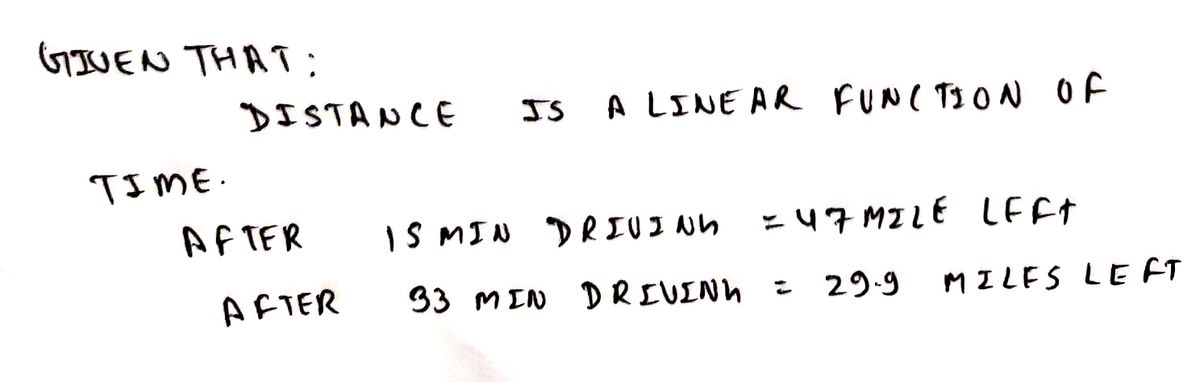 GIVEN THAT:
DISTANCE IS A LINEAR FUNCTION OF
TIME.
AFTER 15 MIN DRIVING = 47 MILE LEFT
AFTER 33 MIN DRIVING = 29.9 MILES LEFT